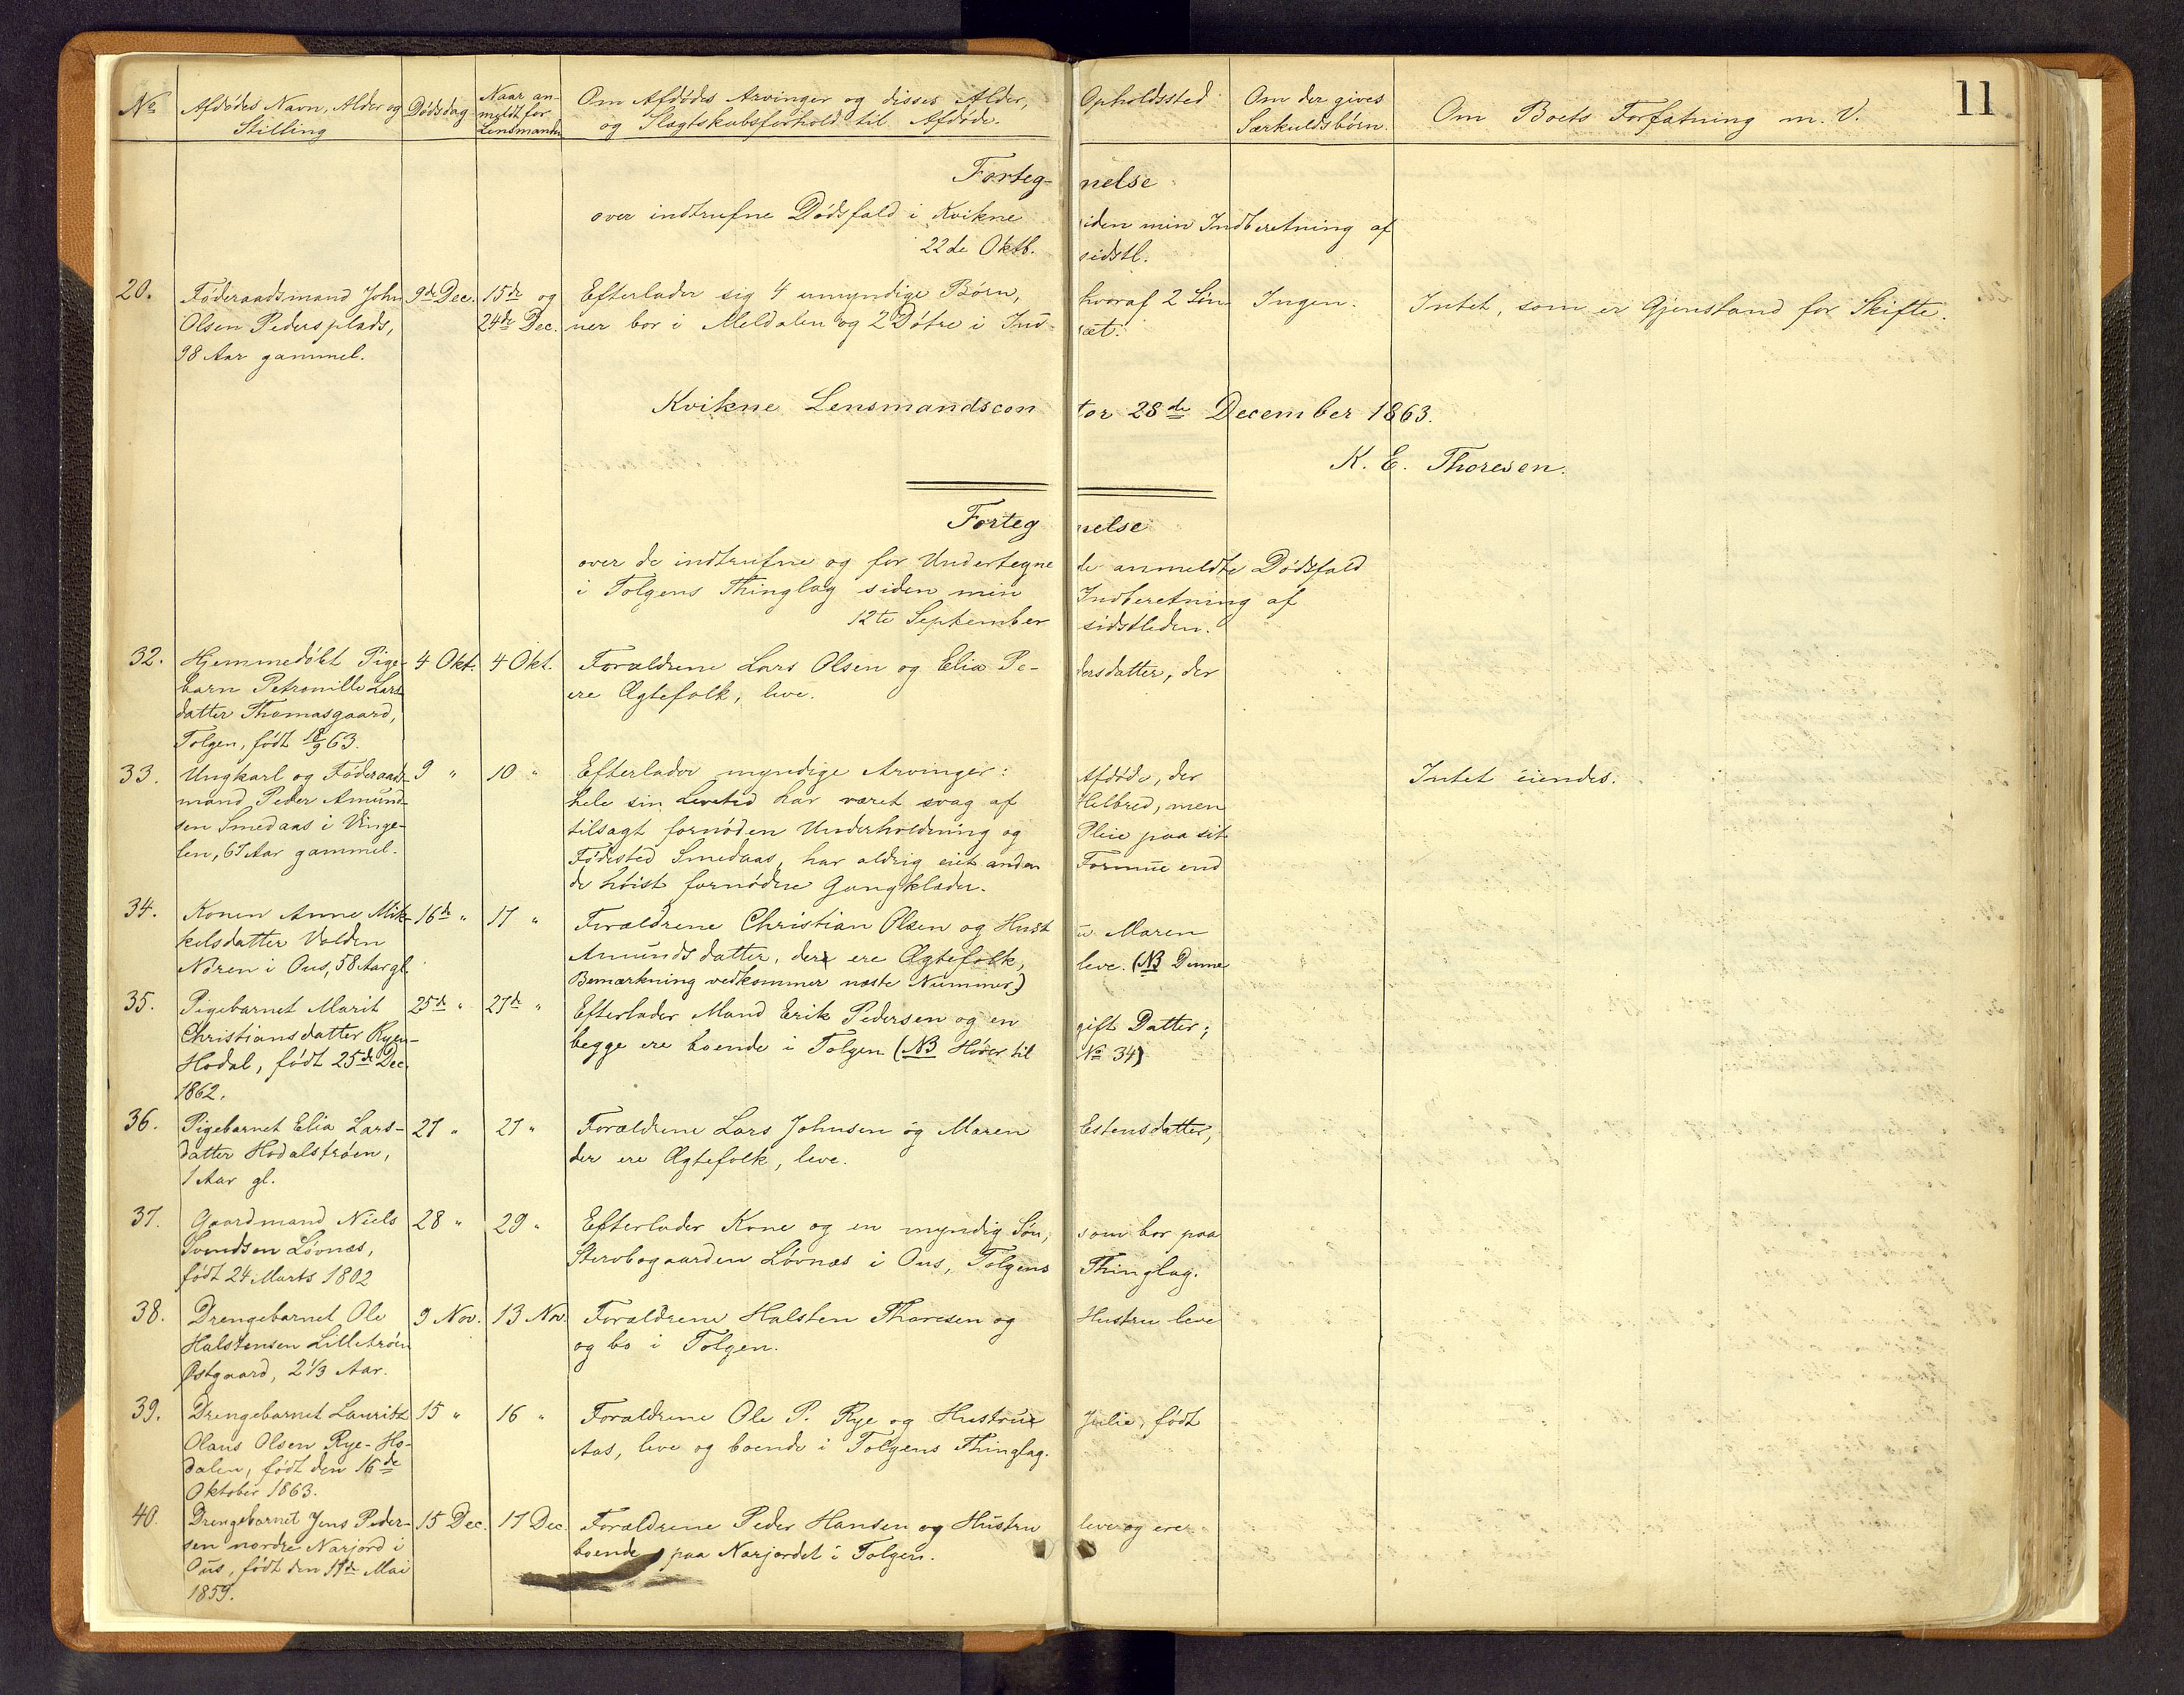 11
No Afdødes Navn, Alder og Stilling Dødsdag Naar anmeldt for Lensmanden Om Afdødes Arvinger og disses Alder, og Slægtskabsforhold til Afdøde. Opholdssted Om der gives Særkuldsbørn. Om Boets Forfatning m. V.
Forteg- nelse
over indtrufne Dødsfald i Kvikne siden min Indberetning af
22de Oktb. sidstl.
20. Føderaadsmand John 9de Dec. 15de og Efterlader sig 4 umyndige Børn, hvoraf 2 Søn Ingen. Intet, som er Gjenstand for Skifte.
Olsen Pedersplads, 24de Dec. ner bor i Meldalen og 2 Døtre i Ind- set.
98 Aar gammel.
Kvikne Lensmandscon tor 28de December 1863.
K. E. Thoresen.
Forteg nelse
over de indtrufne og for Undertegne de anmeldte Dødsfald
i Tolgens Thinglag siden min Indberetning af
12te September sidstleden.
32. Hjemmedøbt Pige- 4 Okt. 4 Okt. Forældrene Lars Olsen og Elia Pe- dersdatter, der
barn Petronille Lars ere Ægtefolk, leve.
datter Thomasgaard,
Tolgen, født 18/9 63.
33. Ungkarl og Føderaads- 9 " 10 " Efterlader myndige Arvinger: Afdøde, der Intet eiendes.
mand Peder Amund- hele sin Levetid har været svag af Helbred, men
sen Smedaas i Vinge- tilsagt fornøden Underholdning og Pleie paa sit
len, 67 Aar gammel. Fødested Smedaas, har aldrig eiet anden Formue end
de høist fornødne Gangklæder.
34. Konen Anne Mik- 16de " 17 " Forældrene Christian Olsen og Hust ru Maren
kelsdatter Volden Amundsdatter, der ere Ægtefolk, leve. (NB Denne
Nøren i Ous, 58 Aar gl. Bemærkning vedkommer næste Nummer)
35. Pigebarnet Marit 25de " 27de " Efterlader Mand Erik Pedersen og en gift Datter;
Christiansdatter Ryen- begge ere boende i Tolgen (NB Hører til No 34)
Hodal, født 25de Dec.
1862.
36. Pigebarnet Elia Lars- 27 " 27 " Forældrene Lars Johnsen og Maren Estensdatter,
datter Hodalstrøen, der ere Ægtefolk, leve.
1 Aar gl.
37. Gaardmand Niels 28 " 29 " Efterlader Kone og en myndig Søn, som bor paa
Svendsen Løvnæs, Stervbogaarden Løvnæs i Ous, Tolgens Thinglag.
født 24 Marts 1802
38. Drengebarnet Ole 9 Nov. 13 Nov. Forældrene Halsten Thoresen og Hustru leve
Halstensen Lilletrøen og bo i Tolgen.
Østgaard, 2 1/3 Aar.
39. Drengebarnet Lauritz 15 " 16 " Forældrene Ole P. Rye og Hustrue Julie, født
Olaus Olsen Rye- Ho- Aas, leve og boende i Tolgens Thinglag.
dalen, født den 16de
Oktober 1863.
40. Drengebarnet Jens Peder- 15 Dec. 17 Dec. Forældrene Peder Hansen og Hustru lever og ere
sen nordre Narjord i boende paa Narjordet i Tolgen.
Ous, født den 11de Mai
1859.